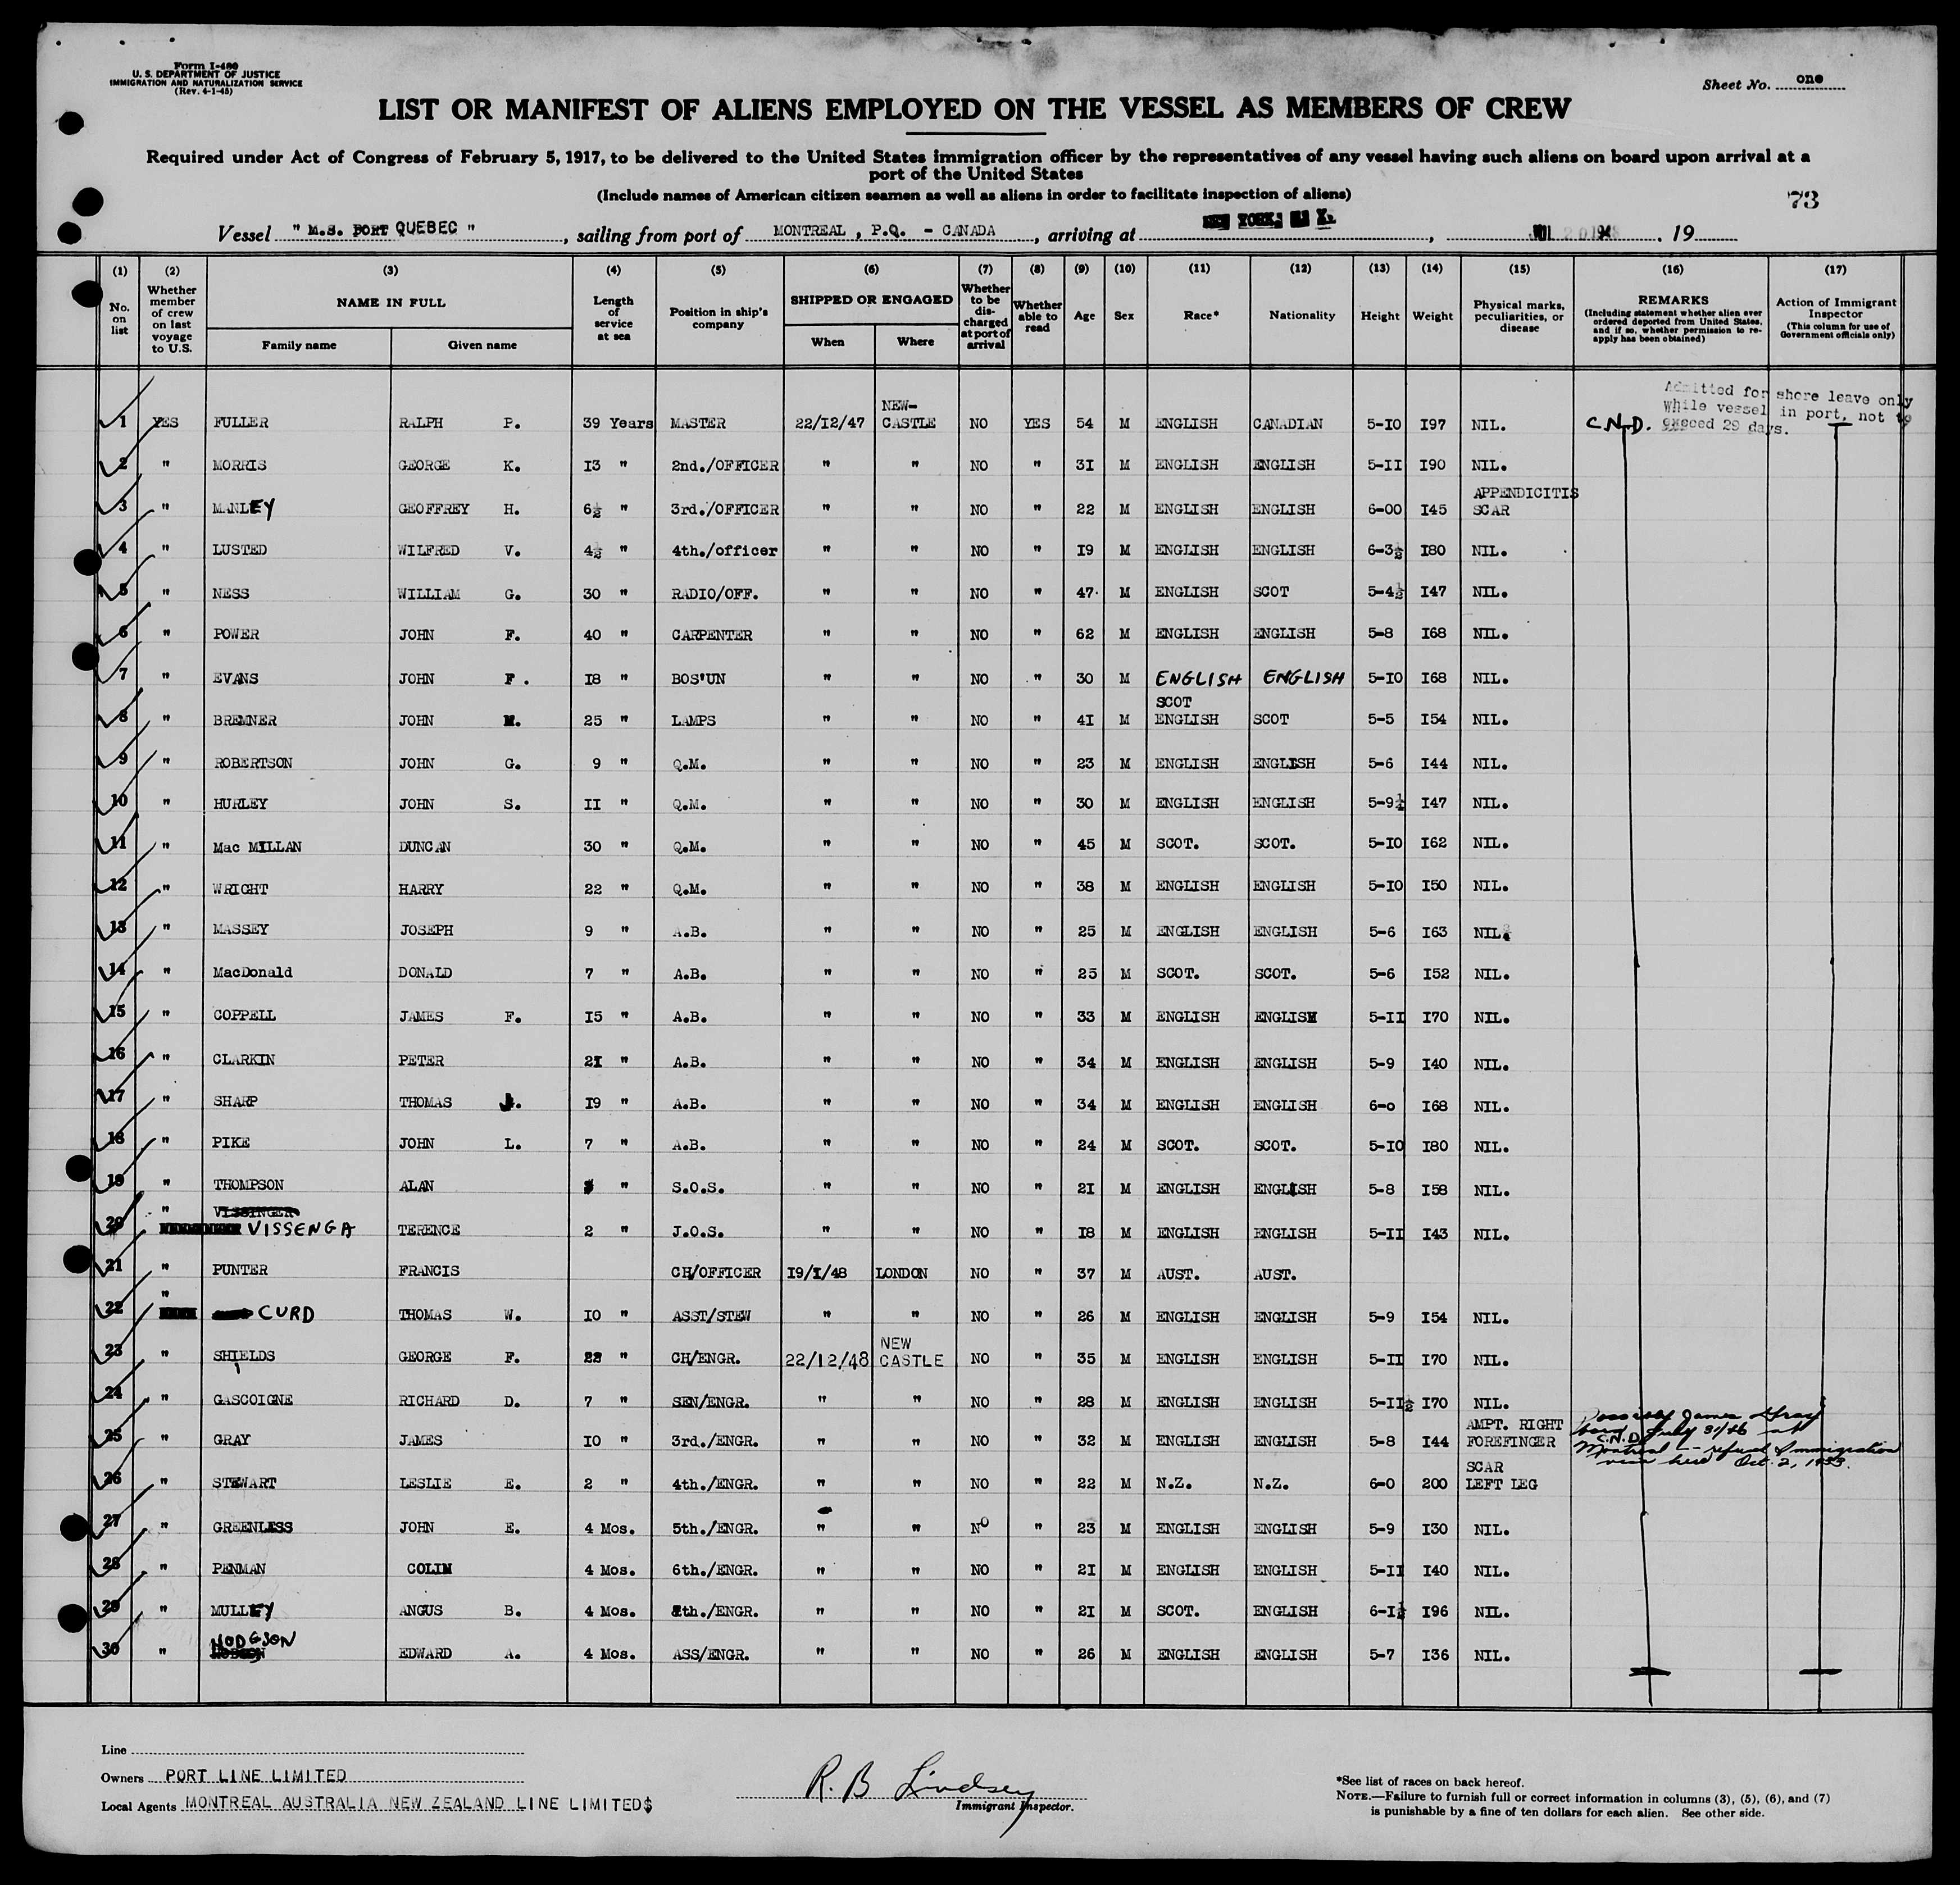 Form I-480
U. S. DEPARTMENT OF JUSTICE
IMMIGRATION AND NATURALIZATION SERVICE
(Rev. 4-1-45)
Sheet No. one
LIST OR MANIFEST OF ALIENS EMPLOYED ON THE VESSEL AS MEMBERS OF CREW
Required under Act of Congress of February 5, 1917, to be delivered to the United States immigration officer by the representatives of any vessel having such aliens on board upon arrival at a
port of the United States
(Include names of American citizen seamen as well as aliens in order to facilitate inspection of aliens)
73
Vessel " M.S. PORT QUEBEC ", sailing from port of MONTREAL , P.Q. - CANADA, arriving at NEW YORK, N. Y., 20 1948, 19
(1) (2) (3) (4) (5) (6) (7) (8) (9) (10) (11) (12) (13) (14) (15) (16) (17)
No. on list
Whether member of crew on last voyage to U.S.
NAME IN FULL
Family name Given name
Length of service at sea
Position in ship's company
SHIPPED OR ENGAGED
When Where
Whether to be discharged at port of arrival
Whether able to read
Age
Sex
Race*
Nationality
Height
Weight
Physical marks, peculiarities, or disease
REMARKS
(Including statement whether alien ever ordered deported from United States, and if so, whether permission to reapply has been obtained)
Action of Immigrant Inspector
(This column for use of Government officials only)
Admitted for shore leave only
While vessel in port, not to
exceed 29 days.
1 YES FULLER RALPH P. 39 Years MASTER 22/12/47 NEW-CASTLE NO YES 54 M ENGLISH CANADIAN 5-10 197 NIL. C.N.D.
2 " MORRIS GEORGE K. 13 " 2nd./OFFICER " " NO " 31 M ENGLISH ENGLISH 5-11 190 NIL.
3 " MANLEY GEOFFREY H. 6½ " 3rd./OFFICER " " NO " 22 M ENGLISH ENGLISH 6-00 145 APPENDICITIS SCAR
4 " LUSTED WILFRED V. 4½ " 4th./officer " " NO " 19 M ENGLISH ENGLISH 6-3½ 180 NIL.
5 " NESS WILLIAM G. 30 " RADIO/OFF. " " NO " 47 M ENGLISH SCOT 5-4½ 147 NIL.
6 " POWER JOHN F. 40 " CARPENTER " " NO " 62 M ENGLISH ENGLISH 5-8 168 NIL.
7 " EVANS JOHN F. 18 " BOS'UN " " NO " 30 M ENGLISH ENGLISH 5-10 168 NIL.
8 " BREMNER JOHN M. 25 " LAMPS " " NO " 41 M SCOT ENGLISH SCOT 5-5 154 NIL.
9 " ROBERTSON JOHN G. 9 " Q.M. " " NO " 23 M ENGLISH ENGLISH 5-6 144 NIL.
10 " HURLEY JOHN S. 11 " Q.M. " " NO " 30 M ENGLISH ENGLISH 5-9¼ 147 NIL.
11 " Mac MILLAN DUNCAN 30 " Q.M. " " NO " 45 M SCOT. SCOT. 5-10 162 NIL.
12 " WRIGHT HARRY 22 " Q.M. " " NO " 38 M ENGLISH ENGLISH 5-10 150 NIL.
13 " MASSEY JOSEPH 9 " A.B. " " NO " 25 M ENGLISH ENGLISH 5-6 163 NIL.
14 " MacDonald DONALD 7 " A.B. " " NO " 25 M SCOT. SCOT. 5-6 152 NIL.
15 " COPPELL JAMES F. 15 " A.B. " " NO " 33 M ENGLISH ENGLISH 5-11 170 NIL.
16 " CLARKIN PETER 21 " A.B. " " NO " 34 M ENGLISH ENGLISH 5-9 140 NIL.
17 " SHARP THOMAS J. 19 " A.B. " " NO " 34 M ENGLISH ENGLISH 6-0 168 NIL.
18 " PIKE JOHN L. 7 " A.B. " " NO " 24 M SCOT. SCOT. 5-10 180 NIL.
19 " THOMPSON ALAN " S.O.S. " " NO " 21 M ENGLISH ENGLISH 5-8 158 NIL.
20 " VISSINGER VISSENGA TERENCE 2 " J.O.S. " " NO " 18 M ENGLISH ENGLISH 5-11 143 NIL.
21 " PUNTER FRANCIS CH/OFFICER 19/1/48 LONDON NO " 37 M AUST. AUST.
22 " CURD THOMAS W. 10 " ASST/STEW " " NO " 26 M ENGLISH ENGLISH 5-9 154 NIL.
23 " SHIELDS GEORGE F. 22 " CH/ENGR. 22/12/48 NEW CASTLE NO " 35 M ENGLISH ENGLISH 5-11 170 NIL.
24 " GASCOIGNE RICHARD D. 7 " SEN/ENGR. " " NO " 28 M ENGLISH ENGLISH 5-11½ 170 NIL.
25 " GRAY JAMES 10 " 3rd./ENGR. " " NO " 32 M ENGLISH ENGLISH 5-8 144 AMPT. RIGHT FOREFINGER C.N.D.
Possibly James Gray
born July 31/16 at
Montreal -- refused Immigration
visa here Oct. 2, 1953.
26 " STEWART LESLIE E. 2 " 4th./ENGR. " " NO " 22 M N.Z. N.Z. 6-0 200 SCAR LEFT LEG
27 " GREENLESS JOHN E. 4 Mos. 5th./ENGR. " " NO " 23 M ENGLISH ENGLISH 5-9 130 NIL.
28 " PENMAN COLIN 4 Mos. 6th./ENGR. " " NO " 21 M ENGLISH ENGLISH 5-11 140 NIL.
29 " MULLEY ANGUS B. 4 Mos. 7th./ENGR. " " NO " 21 M SCOT. ENGLISH 6-1½ 196 NIL.
30 " HODGSON EDWARD A. 4 Mos. ASS/ENGR. " " NO " 26 M ENGLISH ENGLISH 5-7 136 NIL.
Line
Owners PORT LINE LIMITED
Local Agents MONTREAL AUSTRALIA NEW ZEALAND LINE LIMITED$
R. B Lindsey
Immigrant Inspector.
*See list of races on back hereof.
NOTE.—Failure to furnish full or correct information in columns (3), (5), (6), and (7)
is punishable by a fine of ten dollars for each alien. See other side.